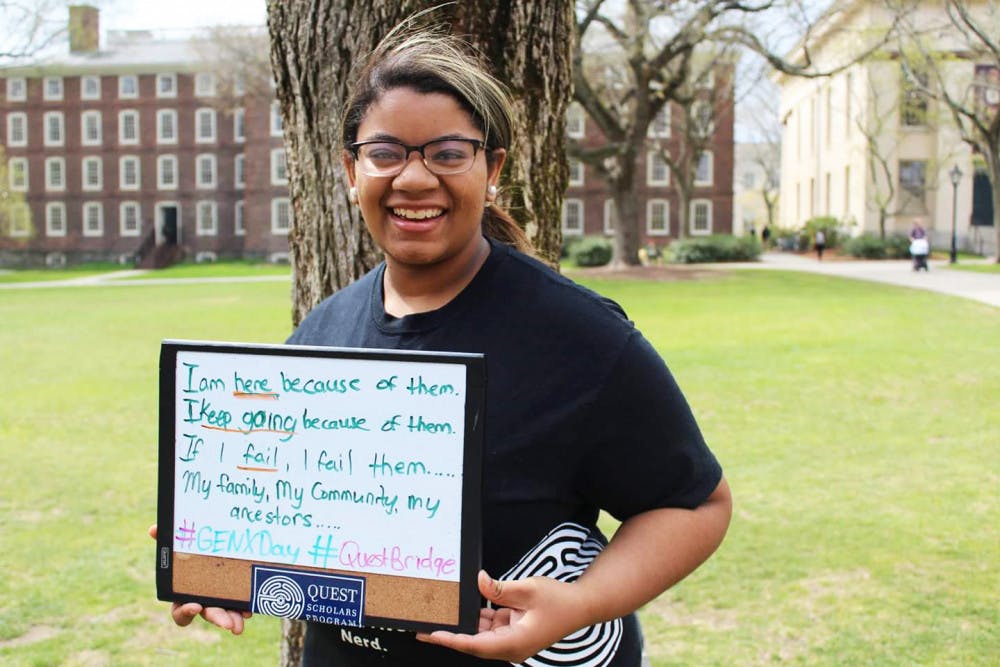 I am here because of them.
I Keep going because of them.
If I fail, I fail them.....
My family, My Community, my
ancestors.....
#GENXDay #QuestBridge
QUEST
SCHOLARS
PROGRAM
Nerd.